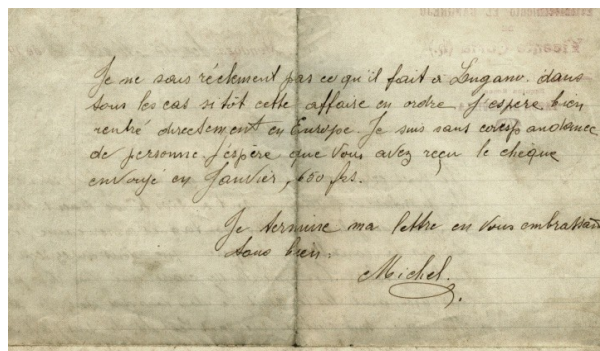 Je ne sais réelement pas ce qu'il fait à Lugano. dans
tous les cas si tôt cette affaire en ordre J'espere bien
rentré directement en Europe. Je suis sans corespondance
de personne J'espère que vous avez reçu le chèque
envoyé en Janvier, 650 frs.
Je termine ma lettre en vous embrassant
tous bien.
Michel.